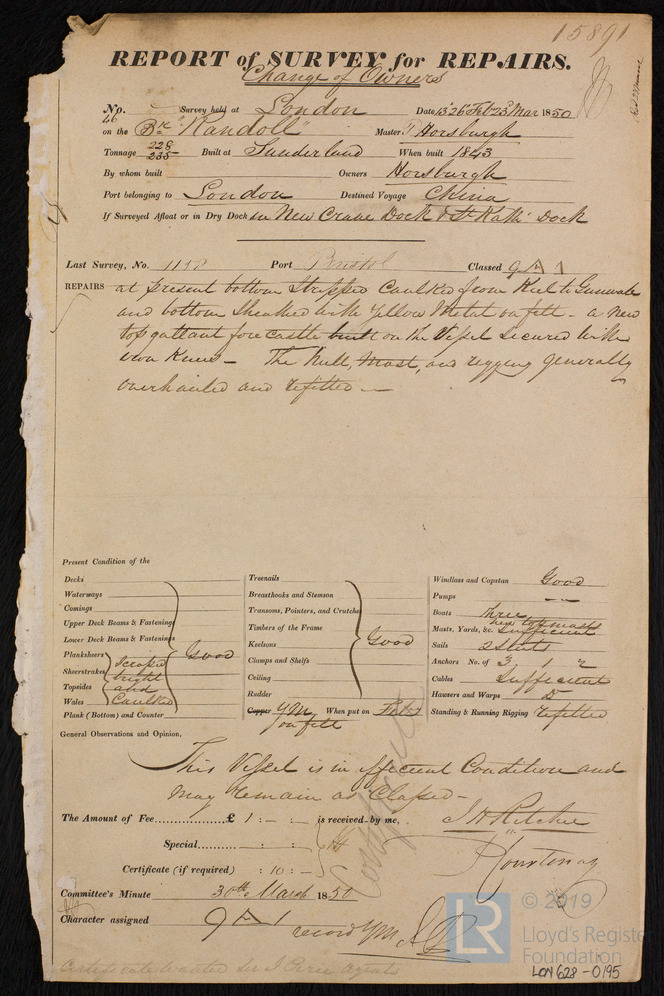 15891
REPORT of SURVEY for REPAIRS.
Change of Owners
No. Survey held at London Date 13 26 Feb 23 Mar 1850
46
on the Bk "Randoll" Master P Horsburgh
Tonnage 228 235 Built at Sunderland When built 1843
By whom built Owners Horsburgh
Port belonging to London Destined Voyage China
If Surveyed Afloat or in Dry Dock in New Crane Dock & St Kath Dock
Last Survey, No. 1158 Port Bristol Classed 9 A 1
REPAIRS at present bottom Stripped Caulked from Keel to Gunwale
and bottom Sheathed with Yellow Metal on felt - a new
top gallant forecastle built on the Vessel secured with
iron Knees - The Hull, Mast, and rigging generally
overhauled and refitted -
Present Condition of the
Decks
Waterways
Comings
Upper Deck Beams & Fastenings
Lower Deck Beams & Fastenings
Planksheers
Sheerstrakes
Topsides
Wales
scraped bright and Caulked
Good
Plank (Bottom) and Counter
Treenails
Breasthooks and Stemson
Transoms, Pointers, and Crutches
Timbers of the Frame
Keelsons
Clamps and Shelfs
Ceiling
Rudder
Good
Copper YM on felt When put on Feby
Windlass and Capstan Good
Pumps - -
Boats three
Masts, Yards, &c. new topmasts sufficient
Sails 2 Suits
Anchors No. of 3 1 2
Cables Sufficient
Hawsers and Warps D
Standing & Running Rigging refitted
General Observations and Opinion,
This Vessel is in efficient Condition and
may remain as Classed -
The Amount of Fee £ 1 : - : is received by me, J H Ritchie
Special : :
Courtenay
Certificate (if required) : 10 : -
Committee's Minute 30th March 1850
Character assigned 9 A 1 record YM
Certificate wanted
© 2019
LR
Lloyd's Register
Foundation
LON 628-0195